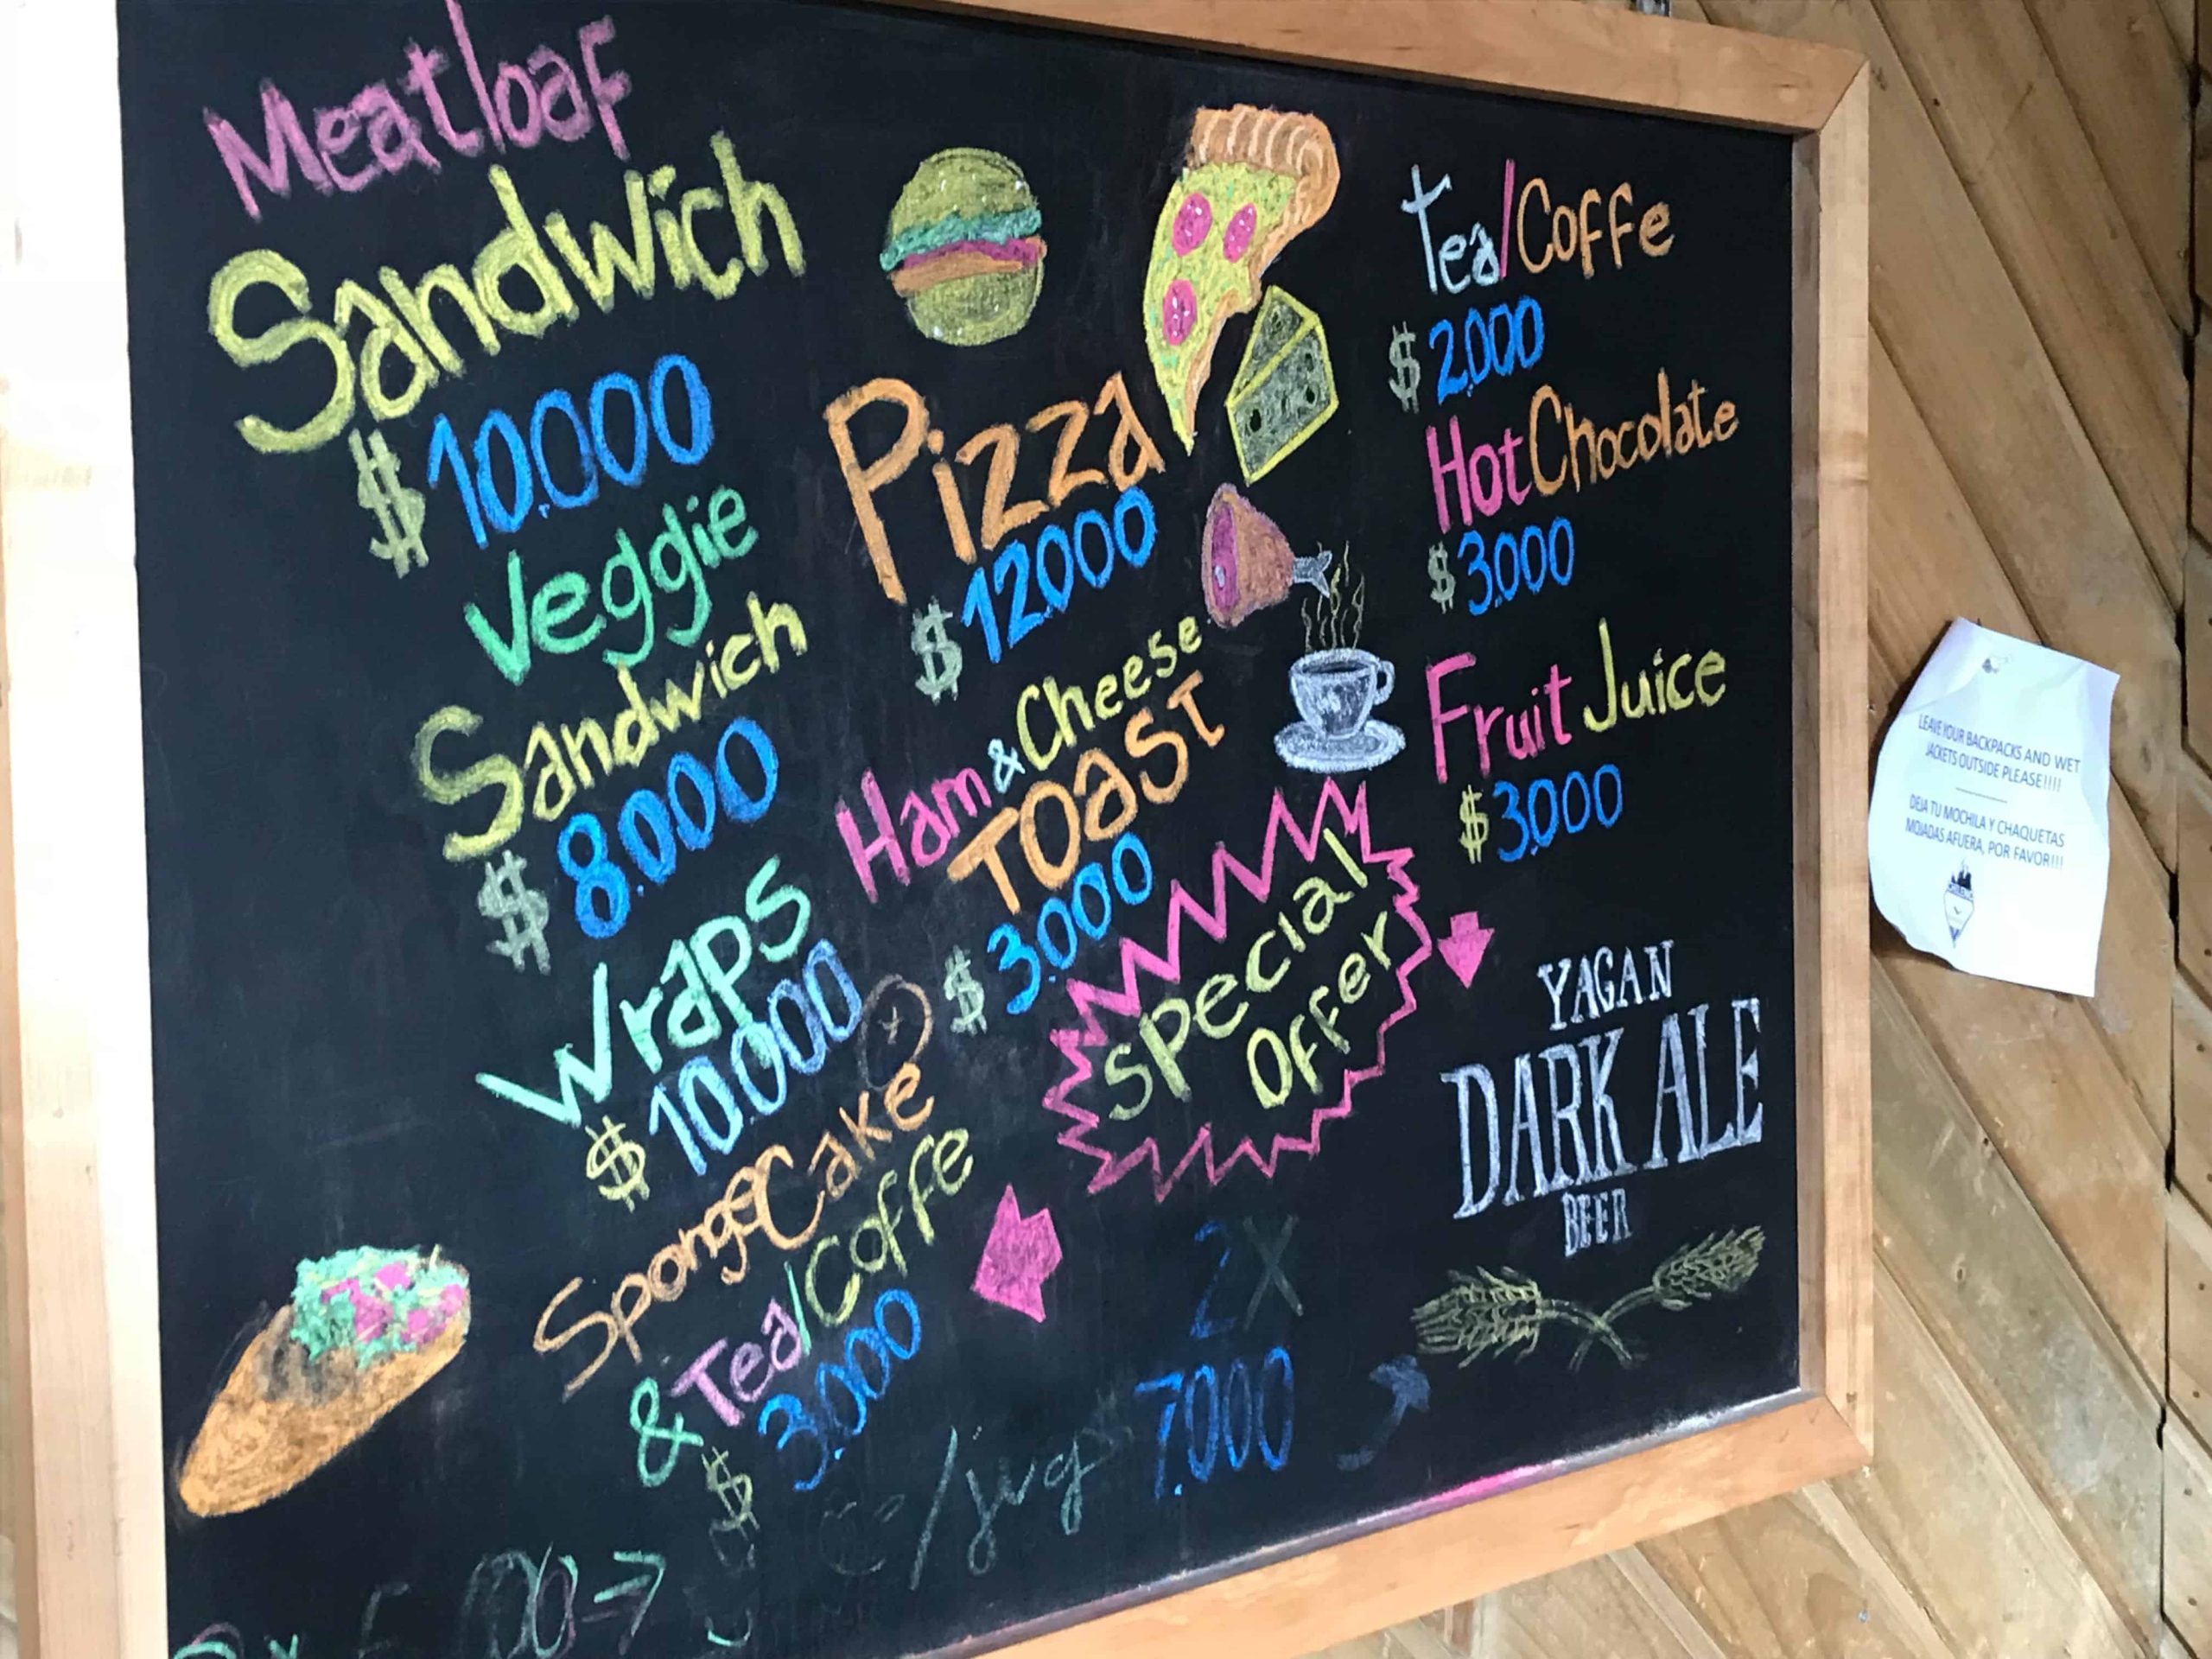 Meatloaf
Sandwich
$ 10.000
Veggie
Sandwich
$ 8.000
Wraps
$ 10.000
Sponge Cake
& Tea/Coffe
$ 3.000
Pizza
$ 12.000
Ham & Cheese
TOAST
$ 3.000
Special
Offer
2X
7.000
Tea/Coffe
$ 2.000
Hot Chocolate
$ 3.000
Fruit Juice
$ 3.000
YAGAN
DARK ALE
BEER
/jug
LEAVE YOUR BACKPACKS AND WET
JACKETS OUTSIDE PLEASE!!!!
DEJA TU MOCHILA Y CHAQUETAS
MOJADAS AFUERA, POR FAVOR!!!